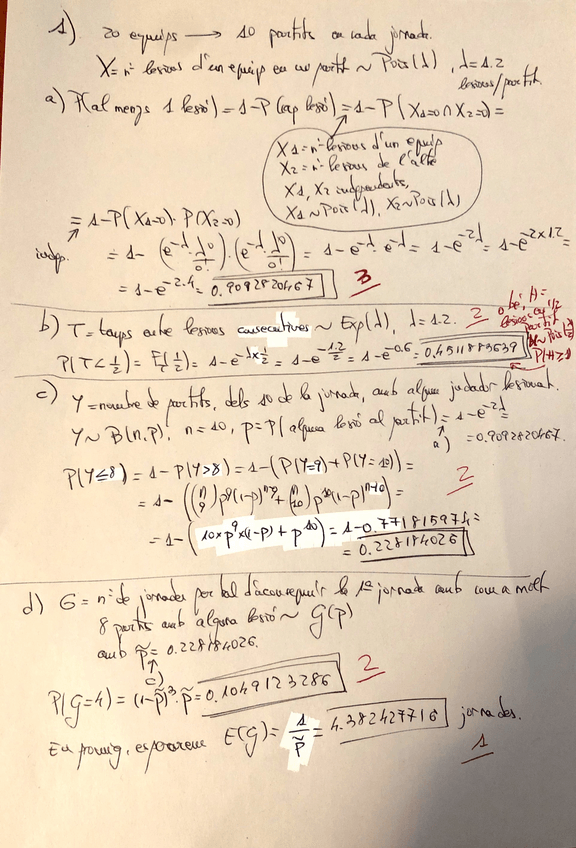 1). 20 equips → 10 partits en cada jornada.
X = nº lesions d'un equip en un partit ~ Pois(λ), λ=1.2
lesions/partit.
a) P(al menys 1 lesió) = 1-P(cap lesió) = 1-P(X1=0 ∩ X2=0) =
X1 = nº lesions d'un equip
X2 = nº lesions de l'altre
X1, X2 independents,
X1 ~ Pois(λ), X2 ~ Pois(λ)
= 1-P(X1=0)·P(X2=0)
indep.
= 1- (e^-λ · λ^0/0!) · (e^-λ · λ^0/0!) = 1-e^-λ · e^-λ = 1-e^-2λ = 1-e^-2×1.2 =
= 1-e^-2.4 = 0.9092820467
3
b) T = temps entre lesions consecutives ~ Exp(λ), λ=1.2.
2
o bé, H =
lesions en 1/2
partit
H ~ Pois(λ/2)
P(H≥1)
P(T < 1/2) = F_T(1/2) = 1-e^-λ×1/2 = 1-e^-1.2/2 = 1-e^-0.6 = 0.4511883639
c) Y = nombre de partits, dels 10 de la jornada, amb algun jugador lesionat.
Y ~ B(n,p), n=10, p = P(alguna lesió al partit) = 1-e^-2λ =
a)
= 0.9092820467.
P(Y≤8) = 1-P(Y>8) = 1-(P(Y=9)+P(Y=10)) =
2
= 1- ((n 9) p^9 (1-p)^n-9 + (n 10) p^10 (1-p)^n-10) =
= 1- (10×p^9×(1-p) + p^10) = 1-0.771815974 =
= 0.228184026
d) G = nº de jornades per tal d'aconseguir la 1ª jornada amb com a molt
8 partits amb alguna lesió ~ G(p̃)
amb p̃ = 0.228184026.
c)
P(G=4) = (1-p̃)^3 · p̃ = 0.1049123286
2
En promig, esperarem E(G) = 1/p̃ = 4.382427716 jornades.
1